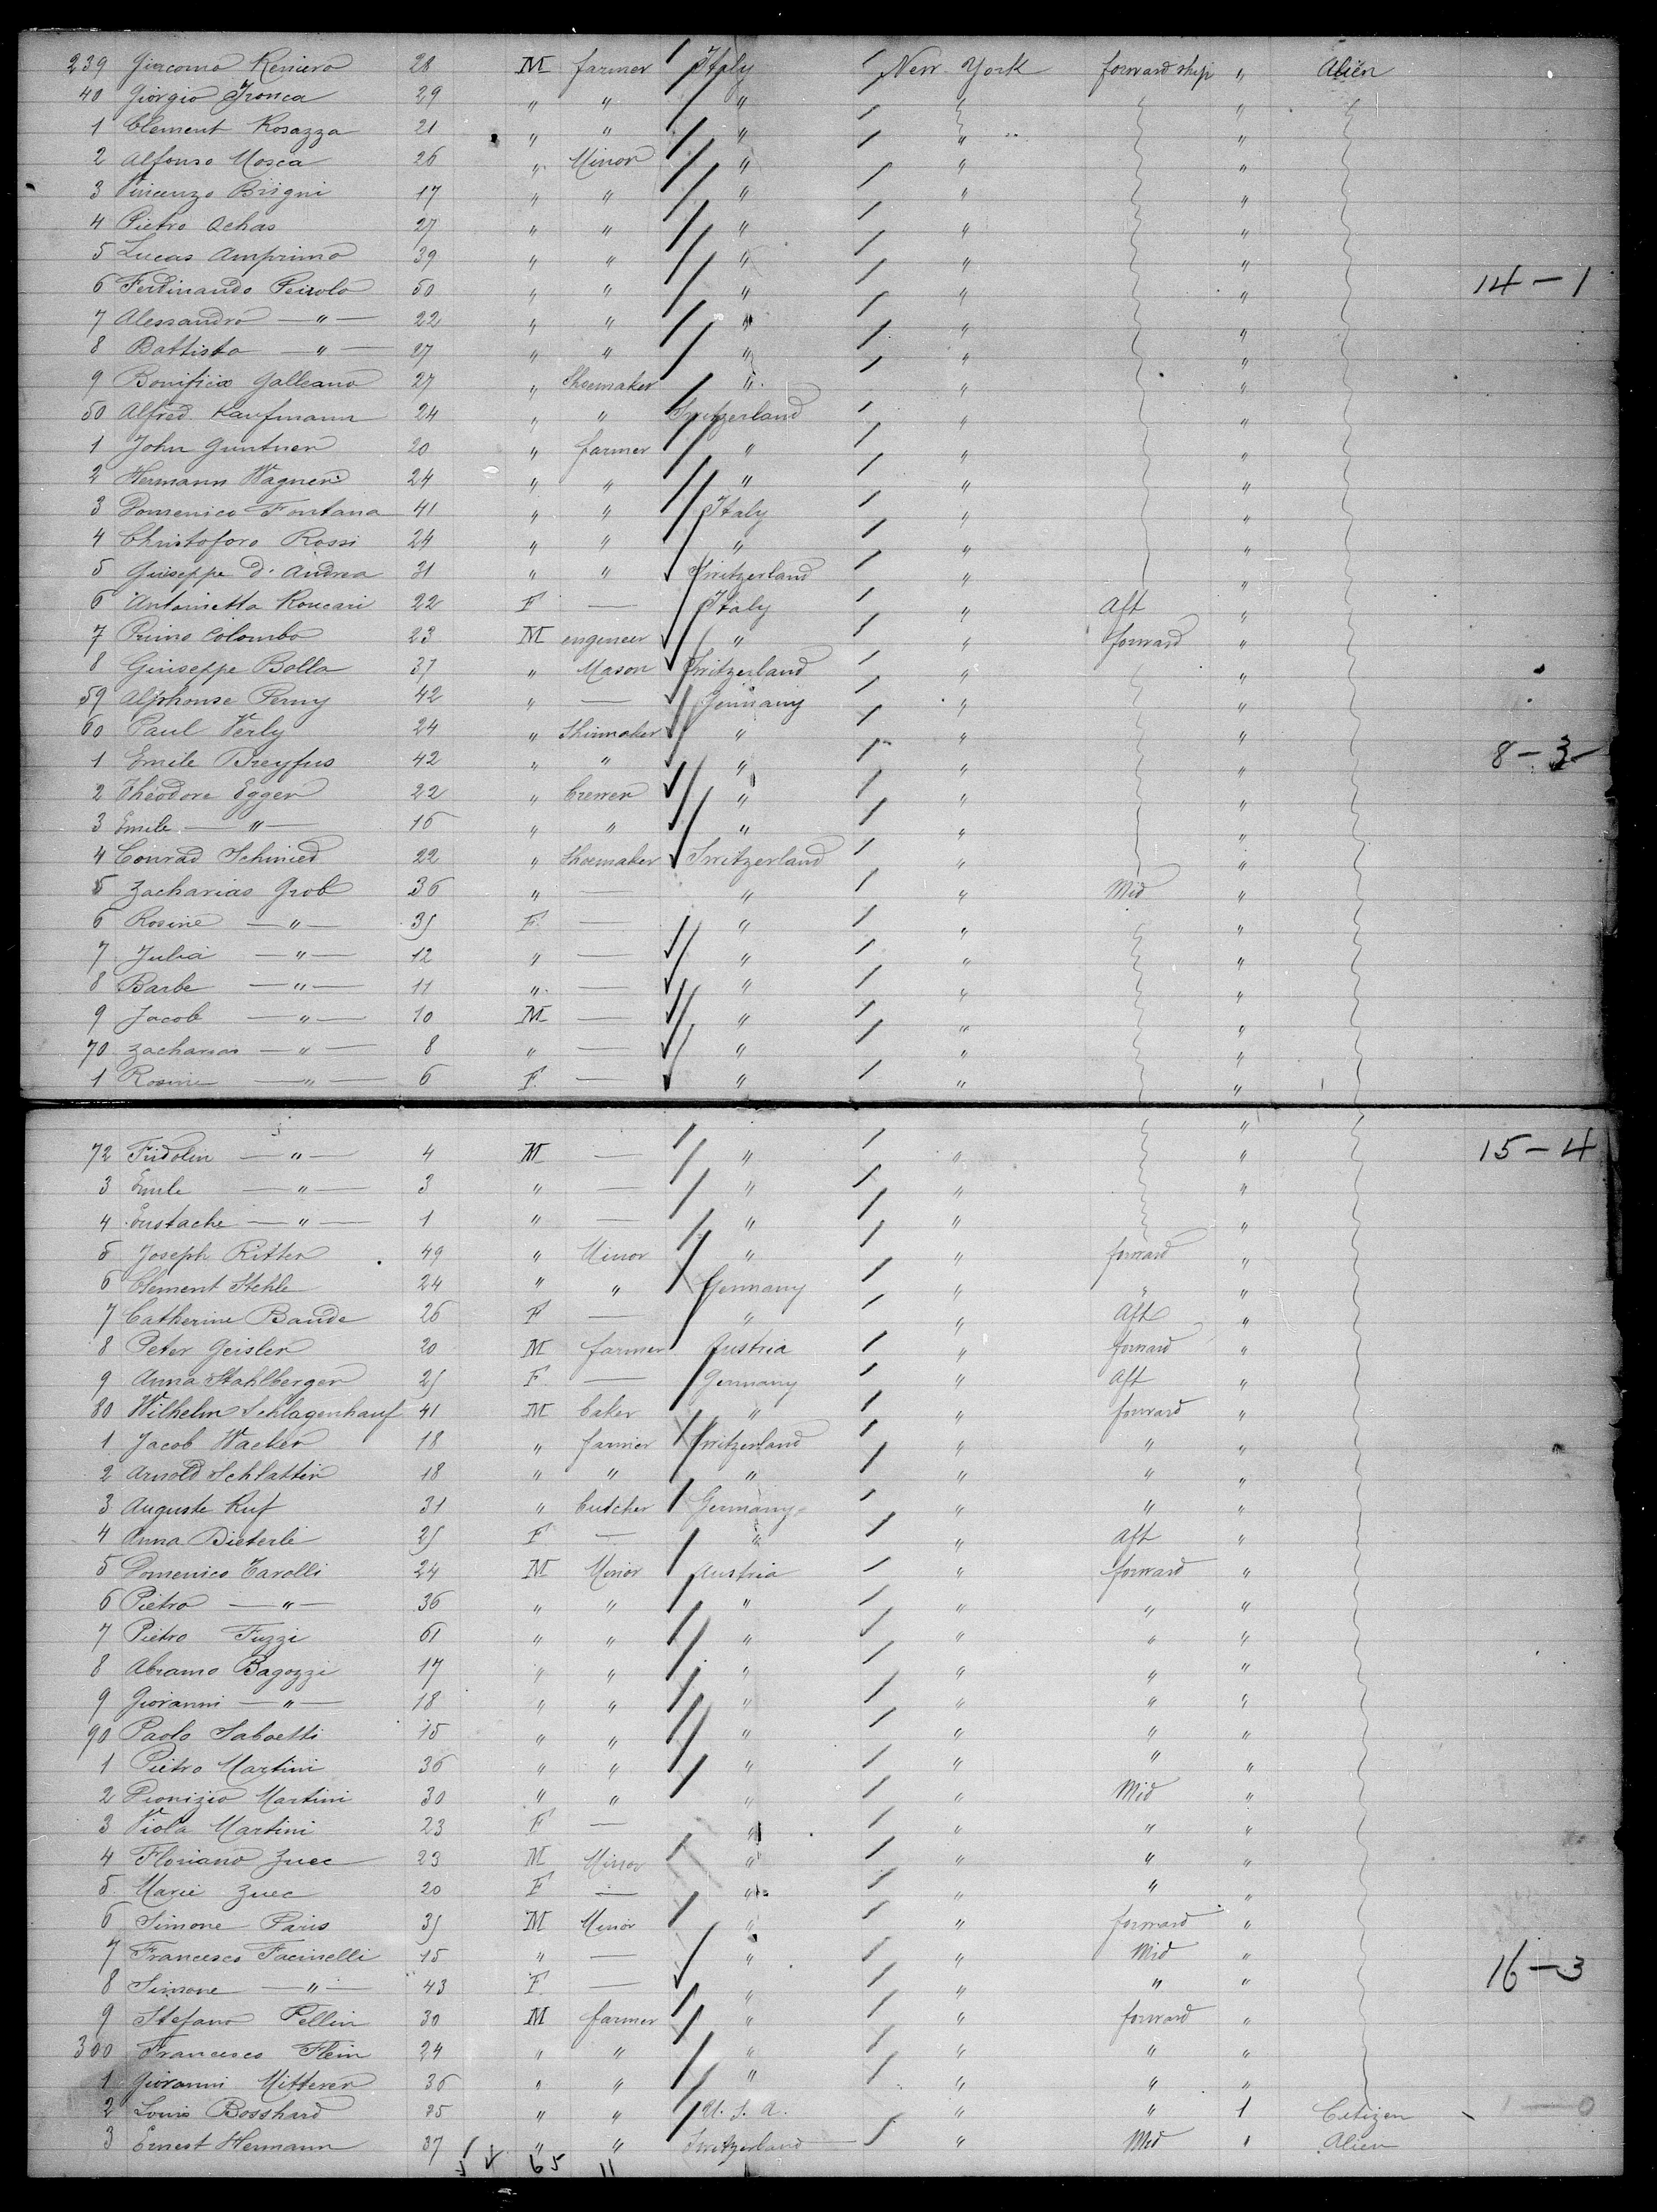 239 Giacomo Reniero 28 M farmer Italy New York forward ship " Alien
40 Giorgio Tronca 29 " " " "
1 Clement Rosazza 21 " " " " "
2 Alfonso Mosca 26 " Minor " " "
3 Vincenzo Brigni 17 " " " " "
4 Pietro Achas 27 " " " " "
5 Lucas Amprimo 39 " " " " "
6 Ferdinando Peirolo 50 " " " " " 14-1
7 Alessandro —"— 22 " " " " "
8 Battista —"— 27 " " " " "
9 Galleano 27 " Shoemaker " " "
50 Alfred Kaufmann 24 " " Switzerland " "
1 John Guntner 20 " farmer " " "
2 Hermann Wagner 24 " " " " "
3 Domenico Fontana 41 " " Italy " "
4 Christoforo Rossi 24 " " " " "
5 Giuseppe D'Andrea 31 " " Switzerland " "
6 Antoinetta Roncari 22 F — Italy " Aft "
7 Primo Colombo 23 M engeneer " " forward "
8 Giuseppe Bolla 37 " Mason Switzerland " "
59 Alphonse Perny 42 " — Germany " "
60 Paul Verly 24 " " " "
1 Emile Dreyfus 42 " " " " " 8-3
2 Théodore Egger 22 " brewer " " "
3 Emile —"— 16 " " " " "
4 Conrad Schmied 22 " Shoemaker Switzerland " "
5 Zacharias Grob 36 " — " " Mid "
6 Rosine —"— 35 F — " " "
7 Julia —"— 12 " — " " "
8 Barbe —"— 11 " — " " "
9 Jacob —"— 10 M — " " "
70 Zacharias —"— 8 " — " " "
1 Rosine —"— 6 F — " " "
72 Fridolin —"— 4 M — " " " 15-4
3 Emile —"— 3 " — " " "
4 Eustache —"— 1 " — " " "
5 Joseph Ritter 49 " Minor " " forward "
6 Clement Stehle 24 " " Germany " " "
7 Catherine Baude 26 F — " " Aft "
8 Peter Geisler 20 M farmer Austria " forward "
9 Anna Stahlberger 25 F — Germany " Aft "
80 Wilhelm Schlagenhauf 41 M baker " " forward "
1 Jacob Wacker 18 " farmer Switzerland " " "
2 Arnold Schlatter 18 " " " " " "
3 Auguste Ruf 31 " butcher Germany " " "
4 Anna Dieterle 25 F — " " Aft "
5 Domenico Carolli 24 M Minor Austria " forward "
6 Pietro —"— 36 " " " " " "
7 Pietro Fuzzi 61 " " " " " "
8 Abramo Bagozzi 17 " " " " " "
9 Giovanni —"— 18 " " " " " "
90 Paolo Saboetti 15 " " " " " "
1 Pietro Martini 36 " " " " " "
2 Dionizio Martini 30 " " " " Mid "
3 Viola Martini 23 F — " " " "
4 Floriano Zuec 23 M Minor " " " "
5 Marie Zuec 20 F — " " " "
6 Simone Paris 35 M Minor " " forward "
7 Francesco Facinelli 15 " — " " Mid "
8 Simone —"— 43 F — " " " " 16-3
9 Stefano Pellin 30 M farmer " " forward "
300 Francesco Flein 24 " " " " " "
1 Giovanni Mitterer 36 " " " " " "
2 Louis Bosshard 25 " " U.S.A. " " 1 Citizen 1-0
3 Ernest Hermann 37 " " Switzerland " Mid " Alien
65 11